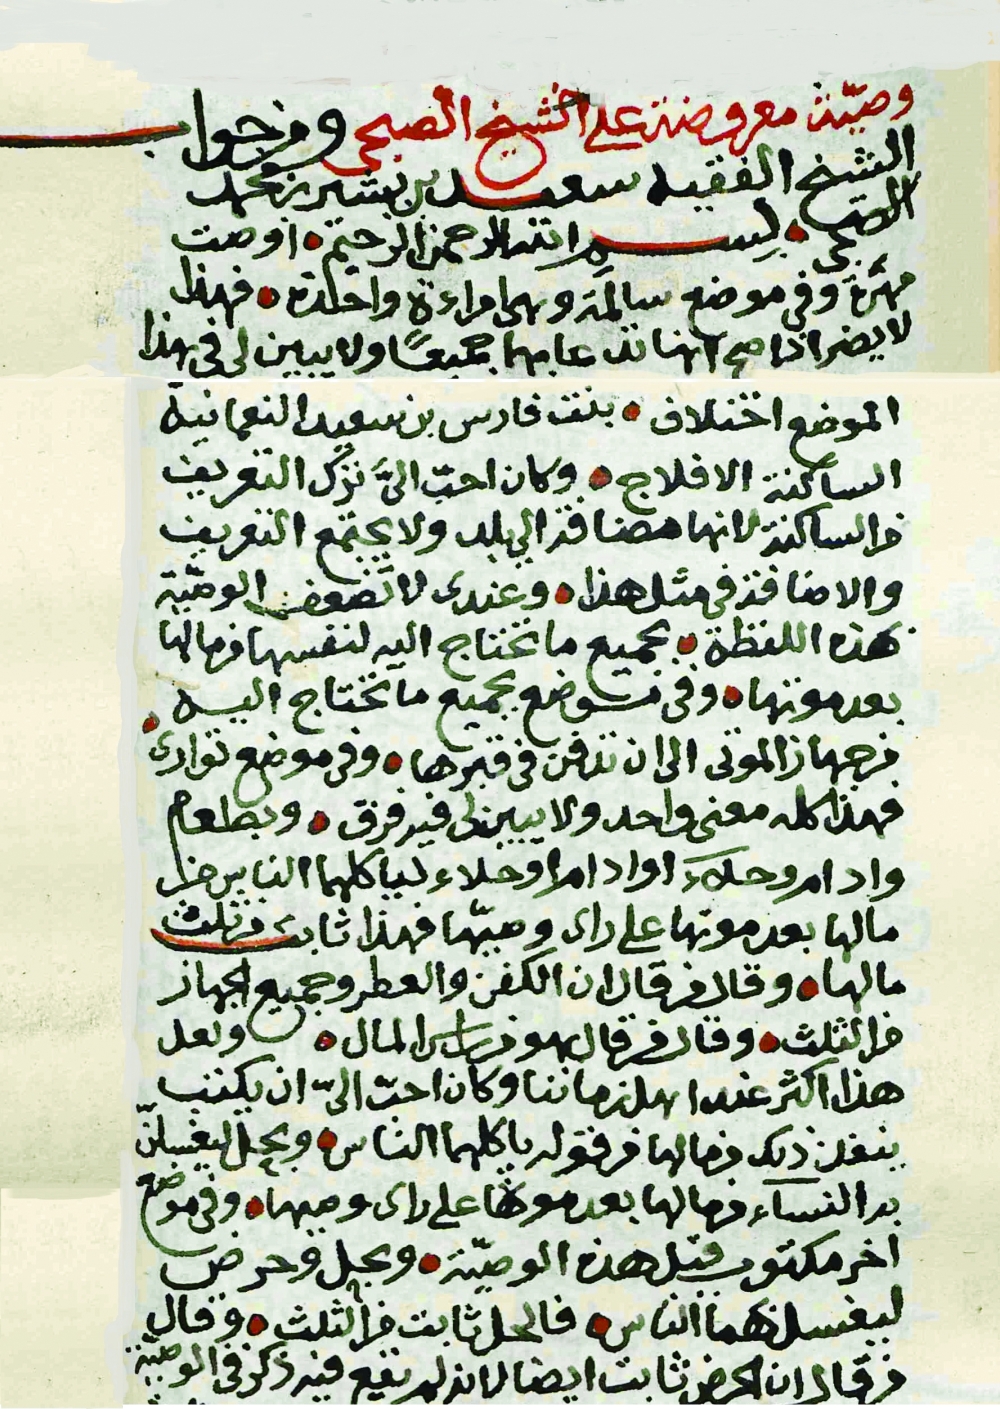 وصيّة معروضة على الشيخ الصبحي ومن جواب
الشيخ الفقيه سعيد بن بشير بن محمد
الصبحي • بسم الله الرحمن الرحيم • اوصت
مهرة وفي موضع سالمة وهي امراءة واحدة • فهذا
لا يضر اذا صح انها تدعا بهما جميعًا ولا يبين لي في هذا
الموضع اختلاف • بنت فارس بن سعيد النعمانية
الساكنة الافلاج • وكان احبّ اليّ ترك التعريف
من الساكنة لانها مضافة الى بلد ولا يجتمع التعريف
والاضافة في مثل هذا • وعندي لا تضعف الوصيّة
هذه اللفظة • بجميع ما تحتاج اليه لنفسها من مالها
بعد موتها • وفي موضع بجميع ما تحتاج اليه •
من جهاز الموتى الى ان تدفن في قبرها • وفي موضع توارى
فهذا كله معنى واحد ولا يبين لي فيه فرق • وبطعام
وادام وحلاء او ادام او حلاء لياكلها الناس من
مالها بعد موتها على راى وصيّها فهذا ثابت من ثلث
مالها • وقال من قال ان الكفن والعطر وجميع الجهاز
من الثلث • وقال من قال هو من راس المال • ولعل
هذا اكثر عند اهل زماننا وكان احبّ اليّ ان يكتب
ينفذ ذلك من مالها من قوله ياكلها الناس • وبحل ليغسلن
به النساء من مالها بعد موتها على راى وصيها • وفي موضع
اخر مكتوب قبل هذه الوصيّة • وبحل وحرض
ليغسلن بهما الناس • فالحل ثابت من الثلث • وقال
من قال ان الحرض ثابت ايضا لانه لم يقع فيه ذكر في الوصيّة